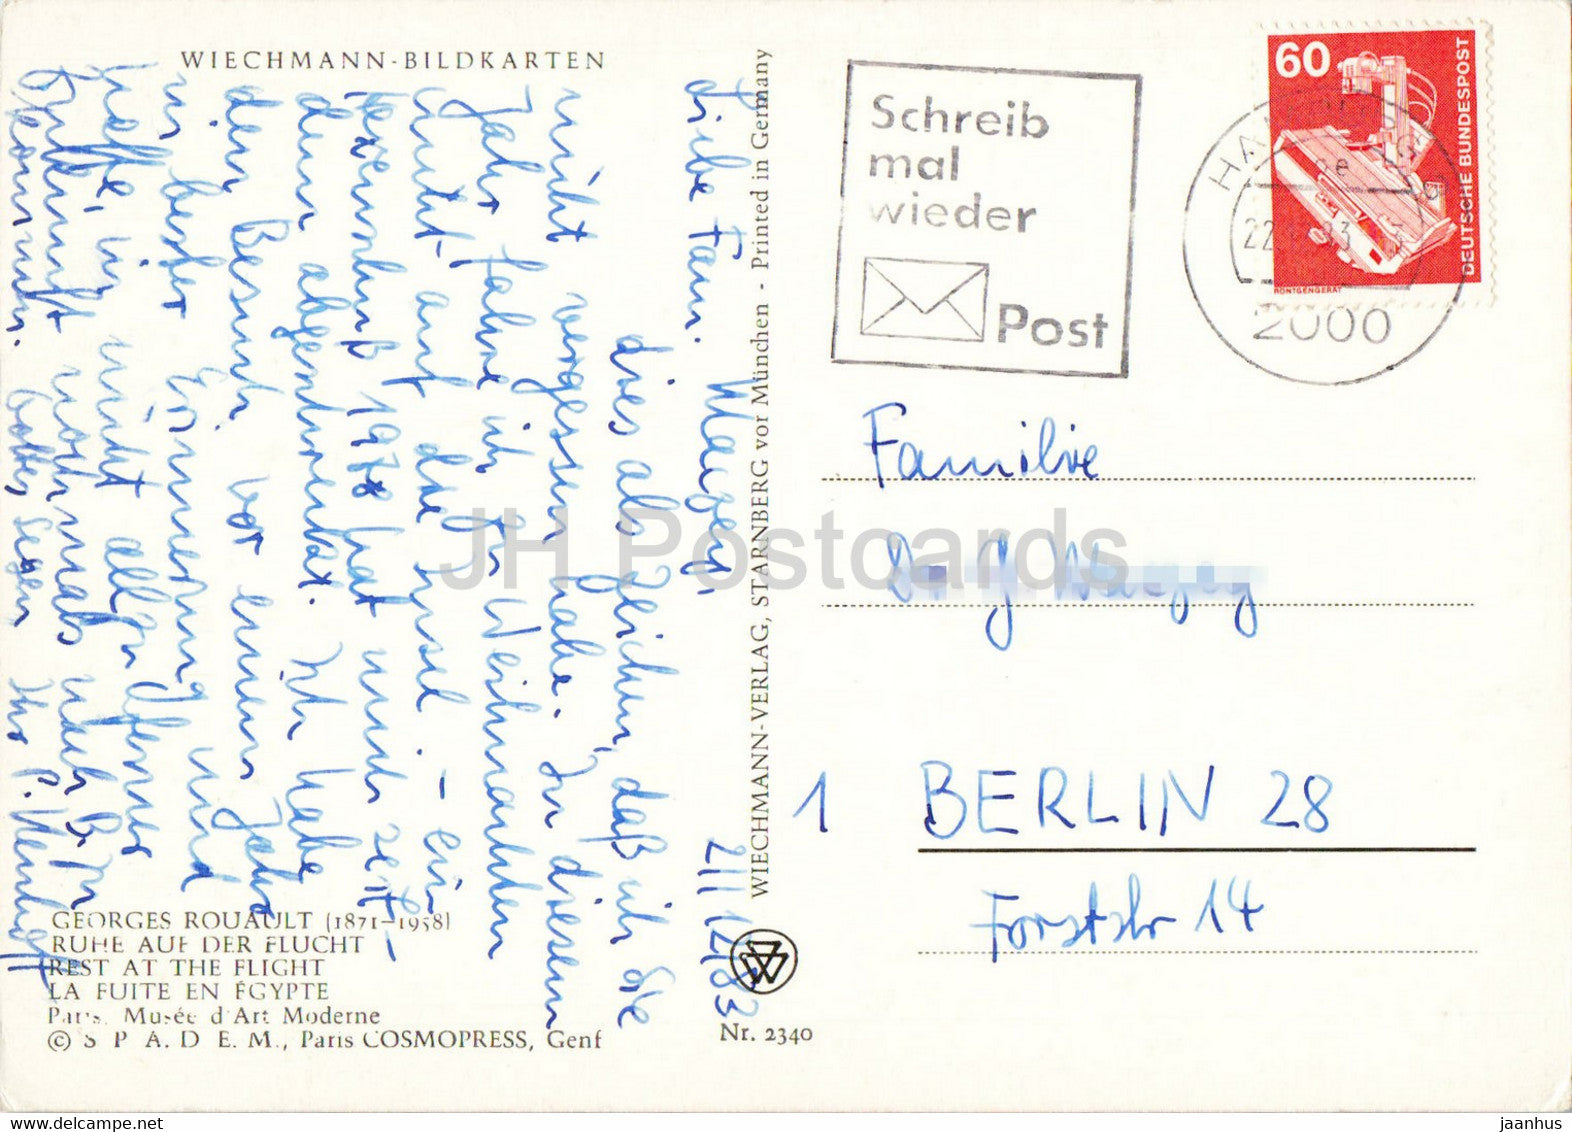 WIECHMANN-BILDKARTEN
Liebe Fam.
21/12/83
dies als Zeichen, daß ich Sie
nicht vergessen habe. In diesem
Jahr fahre ich zu Weihnachten
nicht auf die Insel. – ein
1978 hat mich zeit-
dem abgeschreckt. Ich habe
den Besuch vor einem Jahr
in bester Erinnerung und
hoffe, in nicht allzu ferner
Zukunft nochmals nach Bln
kommen. Gottes Segen Ihr P.
WIECHMANN-VERLAG, STARNBERG vor München - Printed in Germany
GEORGES ROUAULT (1871–1958)
RUHE AUF DER FLUCHT
REST AT THE FLIGHT
LA FUITE EN ÉGYPTE
Paris, Musée d'Art Moderne
© S. P. A. D. E. M., Paris COSMOPRESS, Genf
Nr. 2340
Schreib
mal
wieder
Post
HAMBURG
22
83
2000
60
DEUTSCHE BUNDESPOST
RÖNTGENGERÄT
Familie
Dr. G.
1 BERLIN 28
Forststr 14
JH Postcards
www.delcampe.net
jaanhus